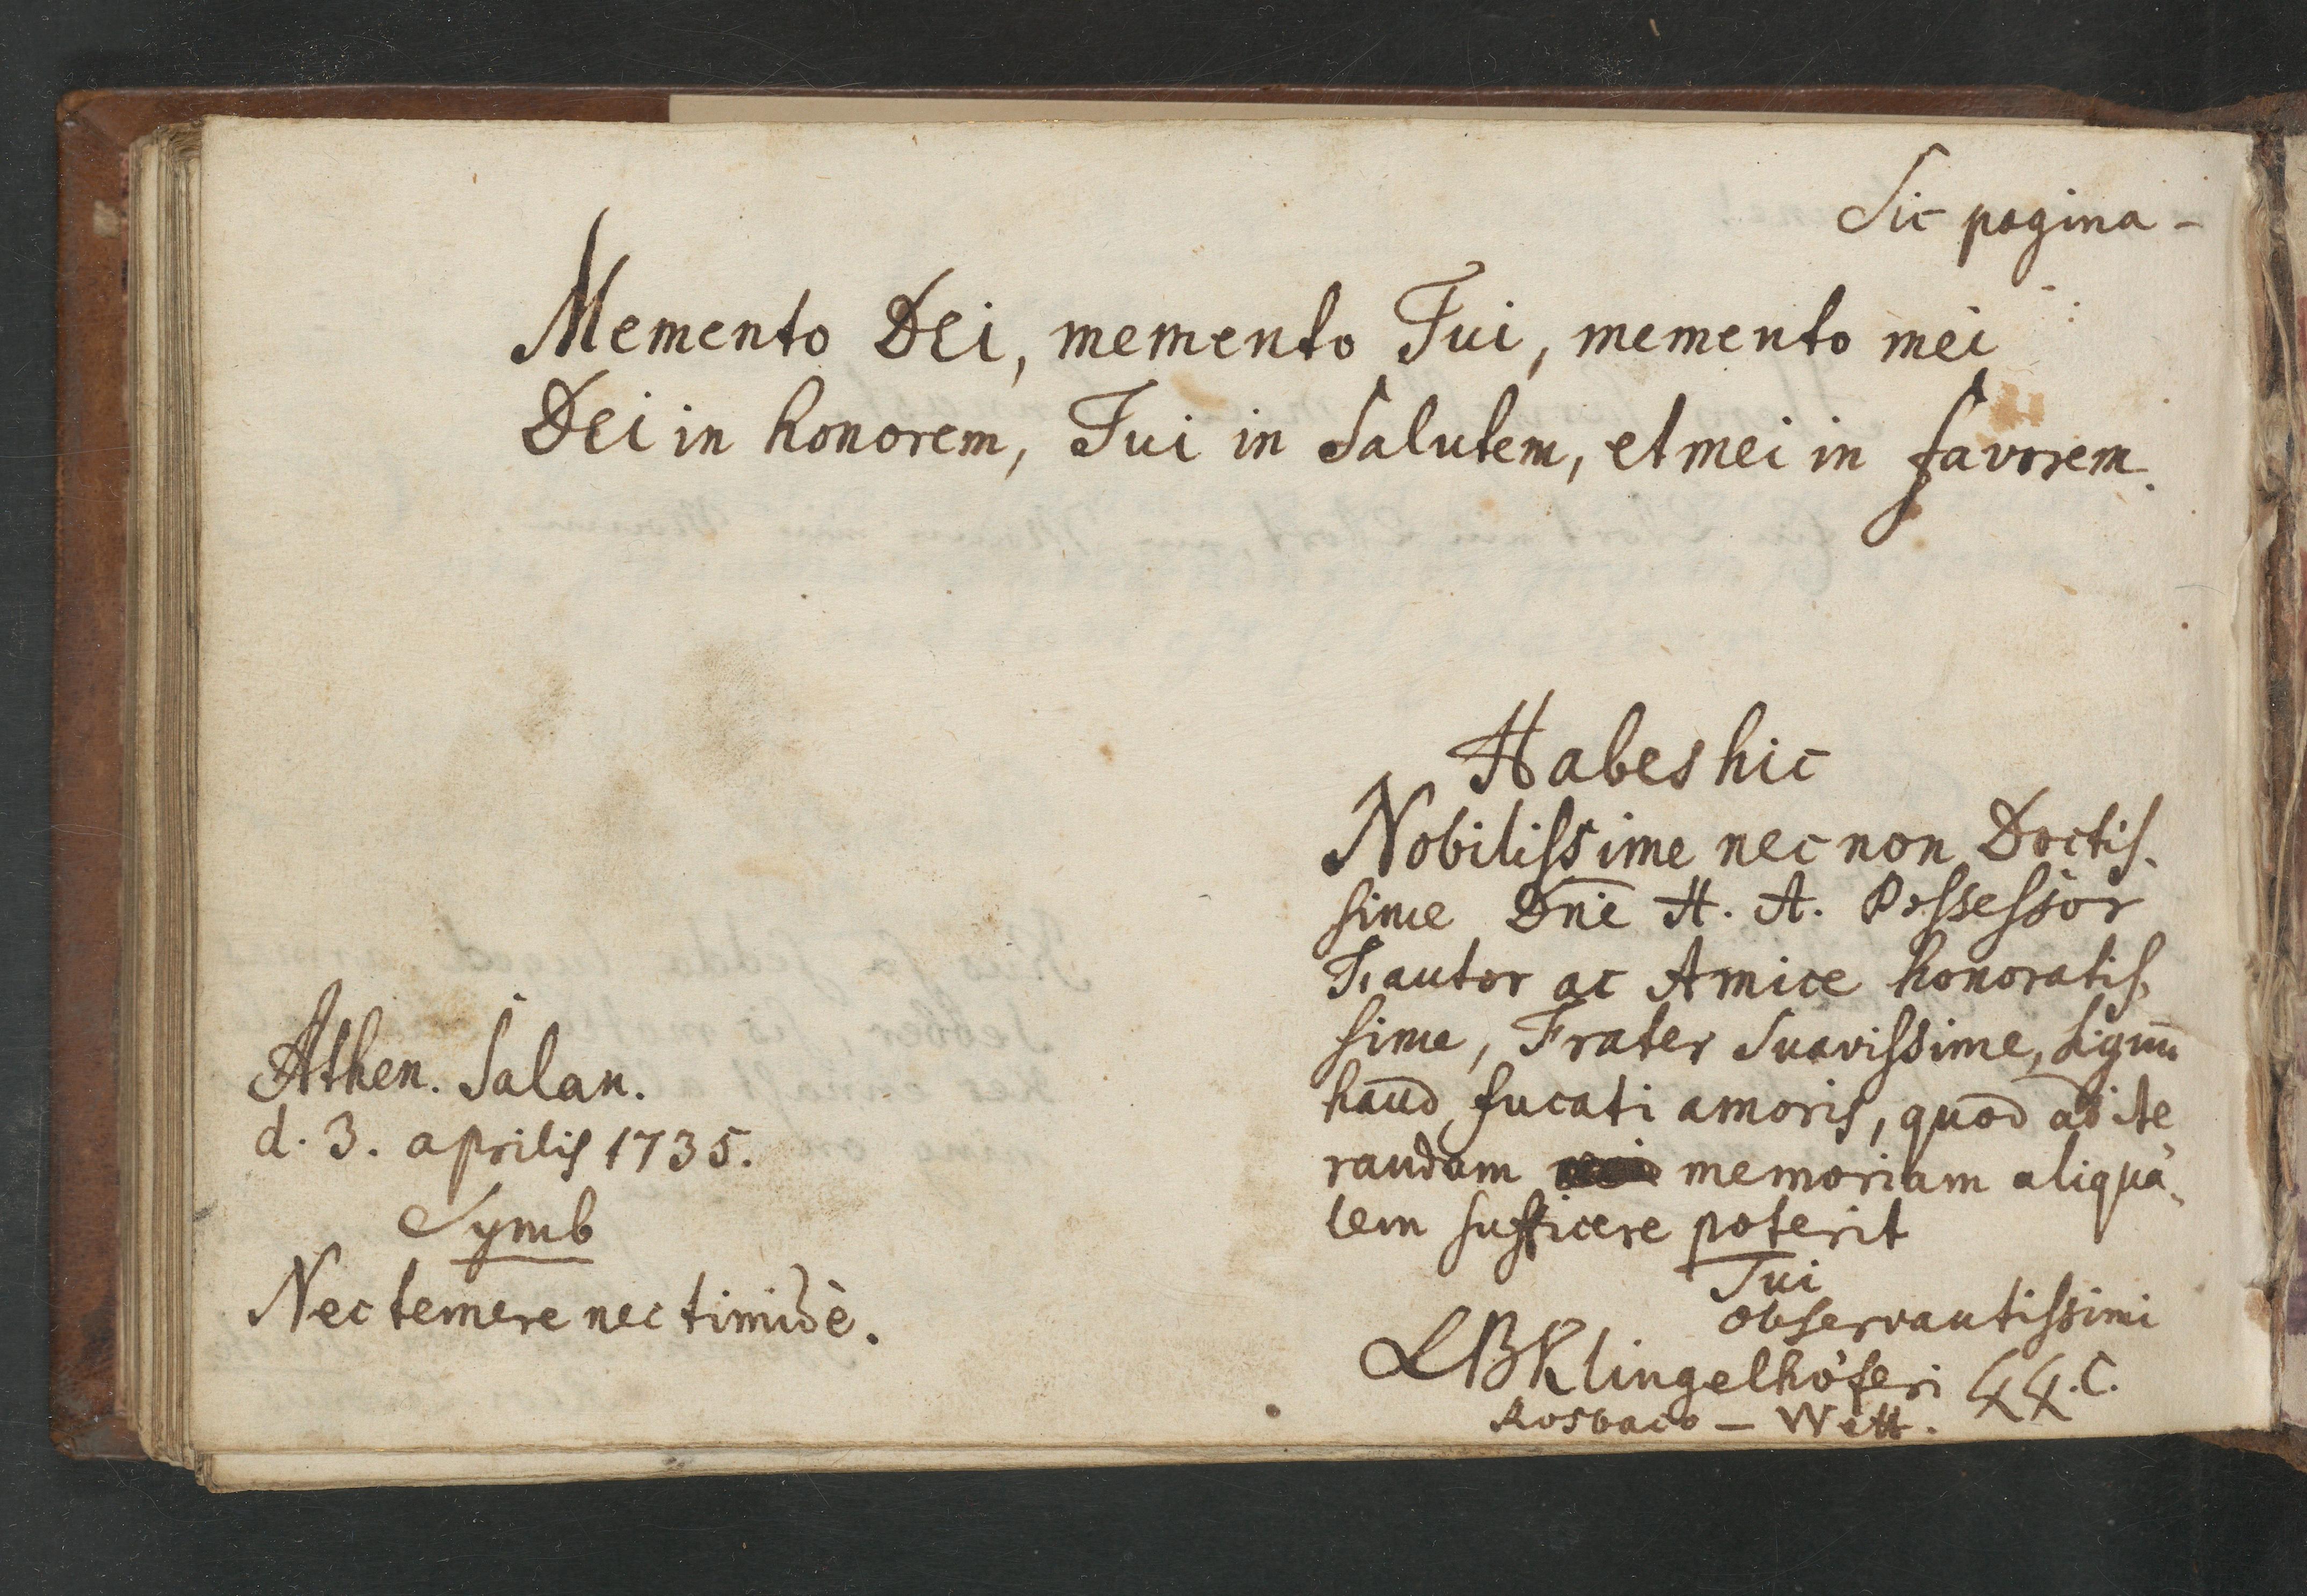 Sic pagina -
Memento Dei, memento Tui, memento mei
Dei in honorem, Tui in Salutem, et mei in favorem.
Habes hic
Nobilissime nec non Doctis-
sime Dn̄e H. A. Possessor
Fautor ac Amice honoratis-
sime, Frater Suavissime, signū
haud fucati amoris, quod ad ite-
randam memoriam aliqua-
lem sufficere poterit
Tui
Observantissimi
LBKlingelhöferi LL.C.
Rosbaco - Wett.
Athen. Salan.
d. 3. aprilis 1735.
Symb
Nec temere nec timidè.